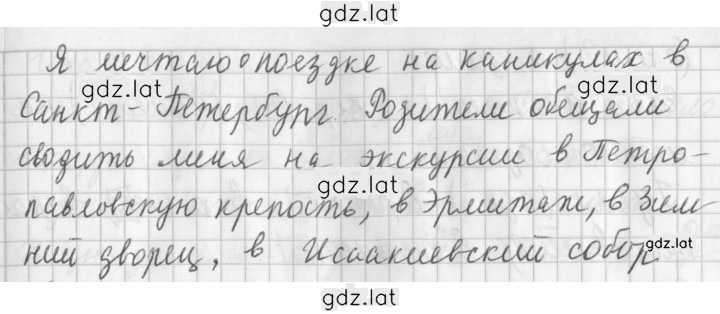 gdz.lat
Я мечтаю о поездке на каникулах в
gdz.lat gdz.lat
Санкт-Петербург. Родители обещали
сводить меня на экскурсии в Петро-
gdz.lat
павловскую крепость, в Эрмитаж, в Зим-
ний дворец, в Исаакиевский собор
gdz.lat gdz.lat
gdz.lat